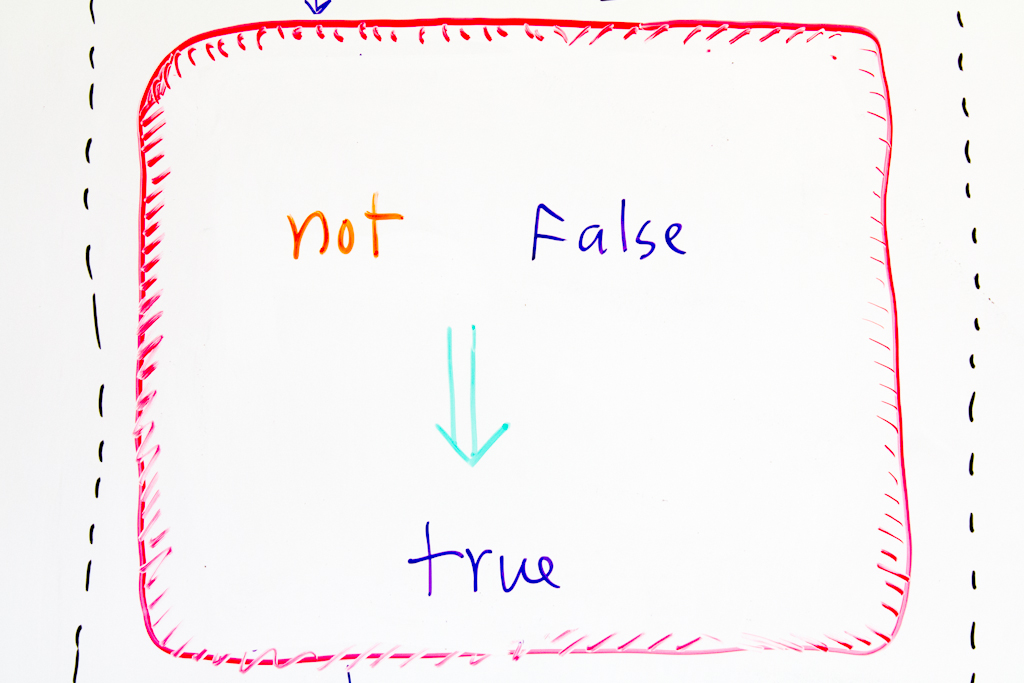 not False
true